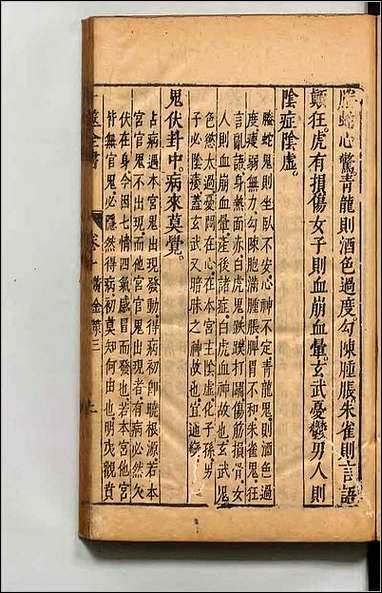 螣蛇心驚青龍則酒色過度勾陳腫脹朱雀則言語
顛狂虎有損傷女子則血崩血暈玄武憂鬱男人則
陰症陰虛
螣蛇鬼則坐臥不安心神不定青龍鬼則酒色過
度瘘弱無力勾陳胞滿腫脹脾胃不和朱雀鬼狂
言亂語身熱面赤白虎鬼跌蹼打鬭傷筋損骨女
人則血崩血暈產後諸症白虎血神故也玄武鬼
色慾太過憂悶在心在本宮主陰虛化子孫男
子必陰痿蓋玄武又暗昧之神故也宜通變
鬼伏卦中病來莫覺
占病遇本宮鬼出現發動得病初卽曉根源若本
宮官鬼不出現而他宮官鬼出現者有病必然久
伏在身今因七情四氣感冒而發也若本宮他宮
並無官鬼必隱然得病初莫知何由也明夷觀賁
卜筮全書
卷十 黃金策三